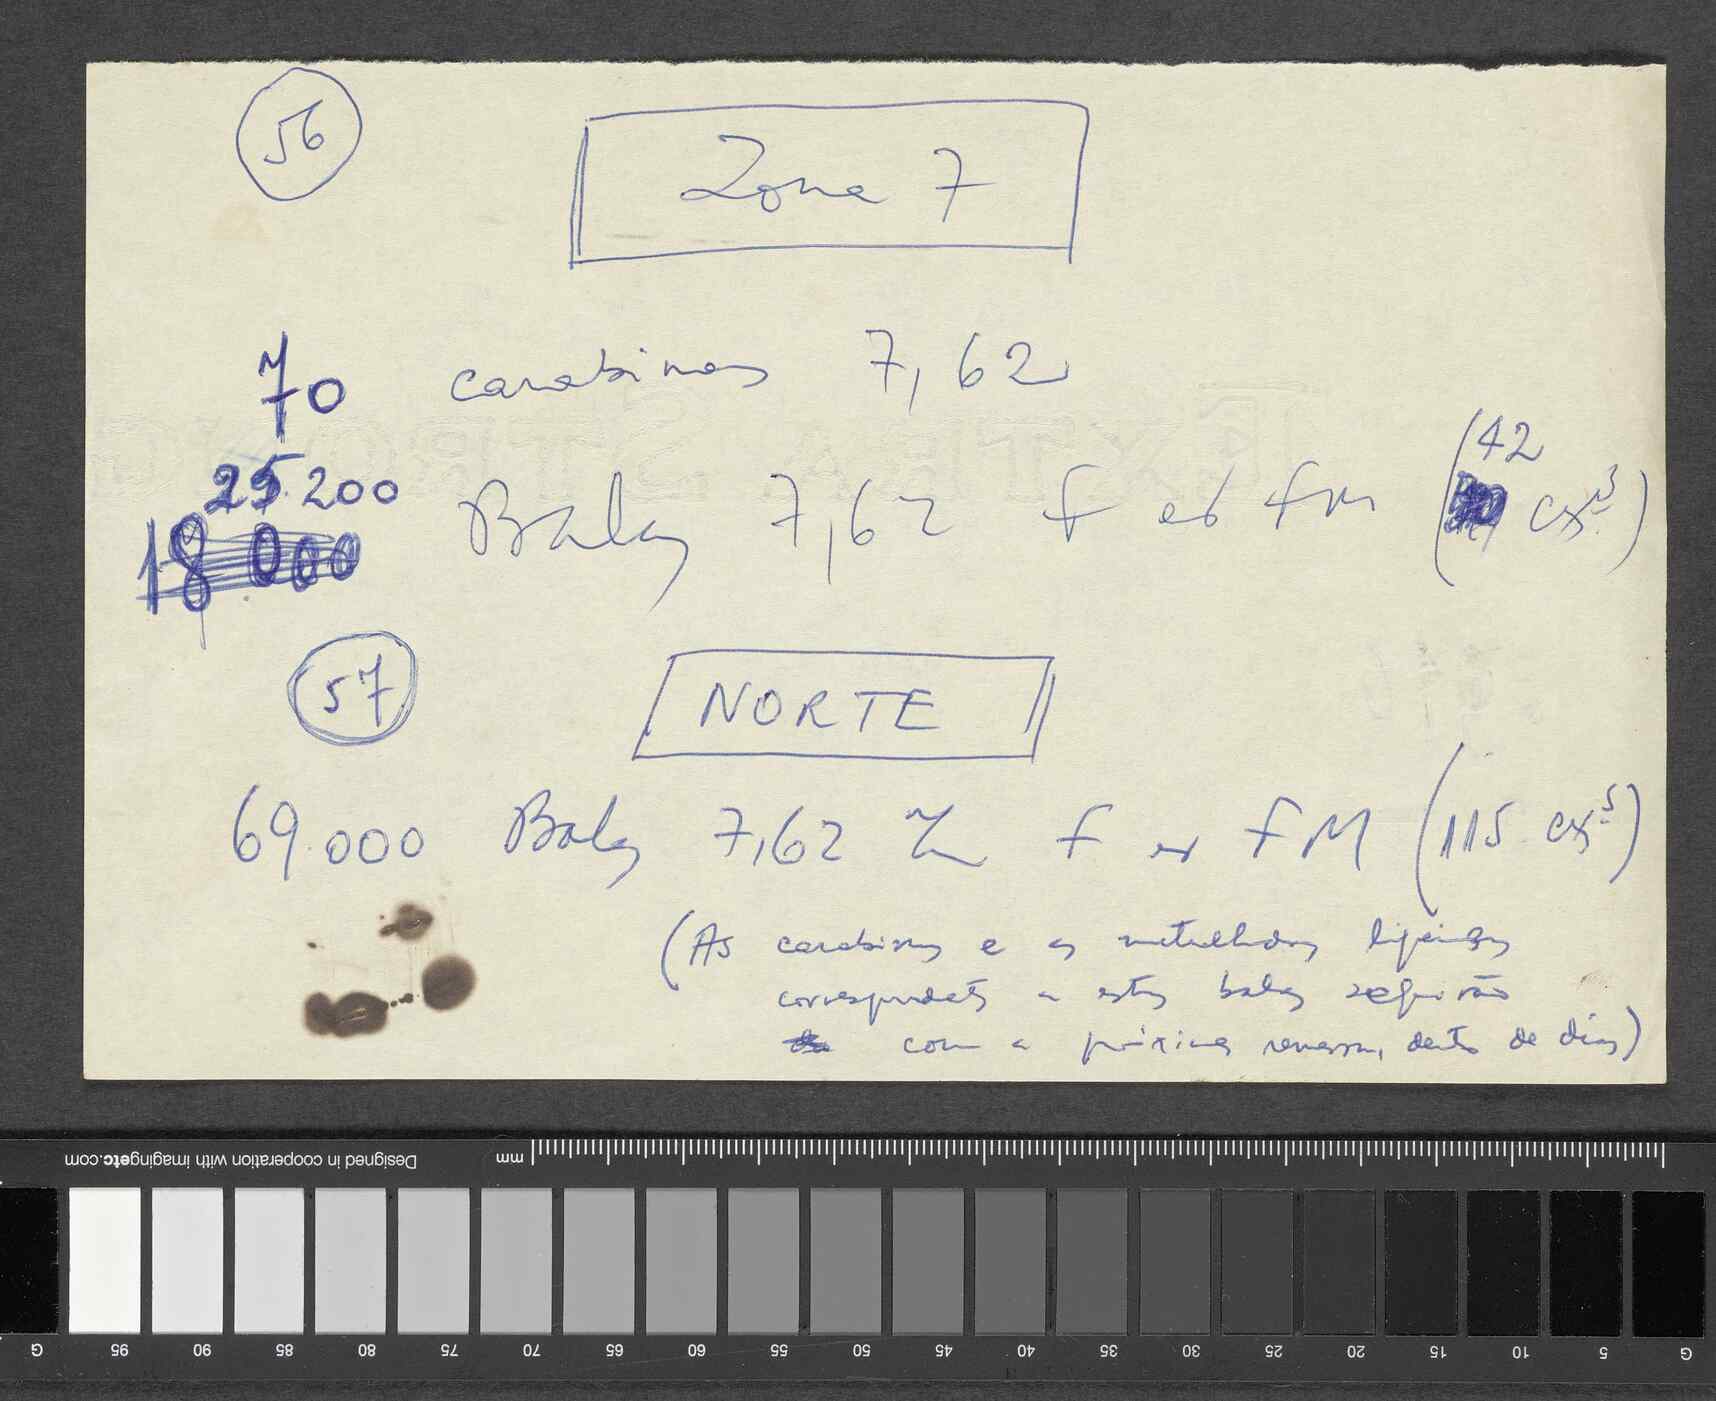 56
Zona 7
70 carabinas 7,62
25.200
18 000 Balas 7,62 f et fM (42 cxs)
57
NORTE
69.000 Balas 7,62 f et FM (115 cxs)
(As carabinas e as metralhadoras ligeiras
correspondentes a estas balas seguirão
com a próxima remessa, dentro de dias)
EXTRA STRONG
Designed in cooperation with imagingetc.com
mm
G 95 90 85 80 75 70 65 60 55 50 45 40 35 30 25 20 15 10 5 G